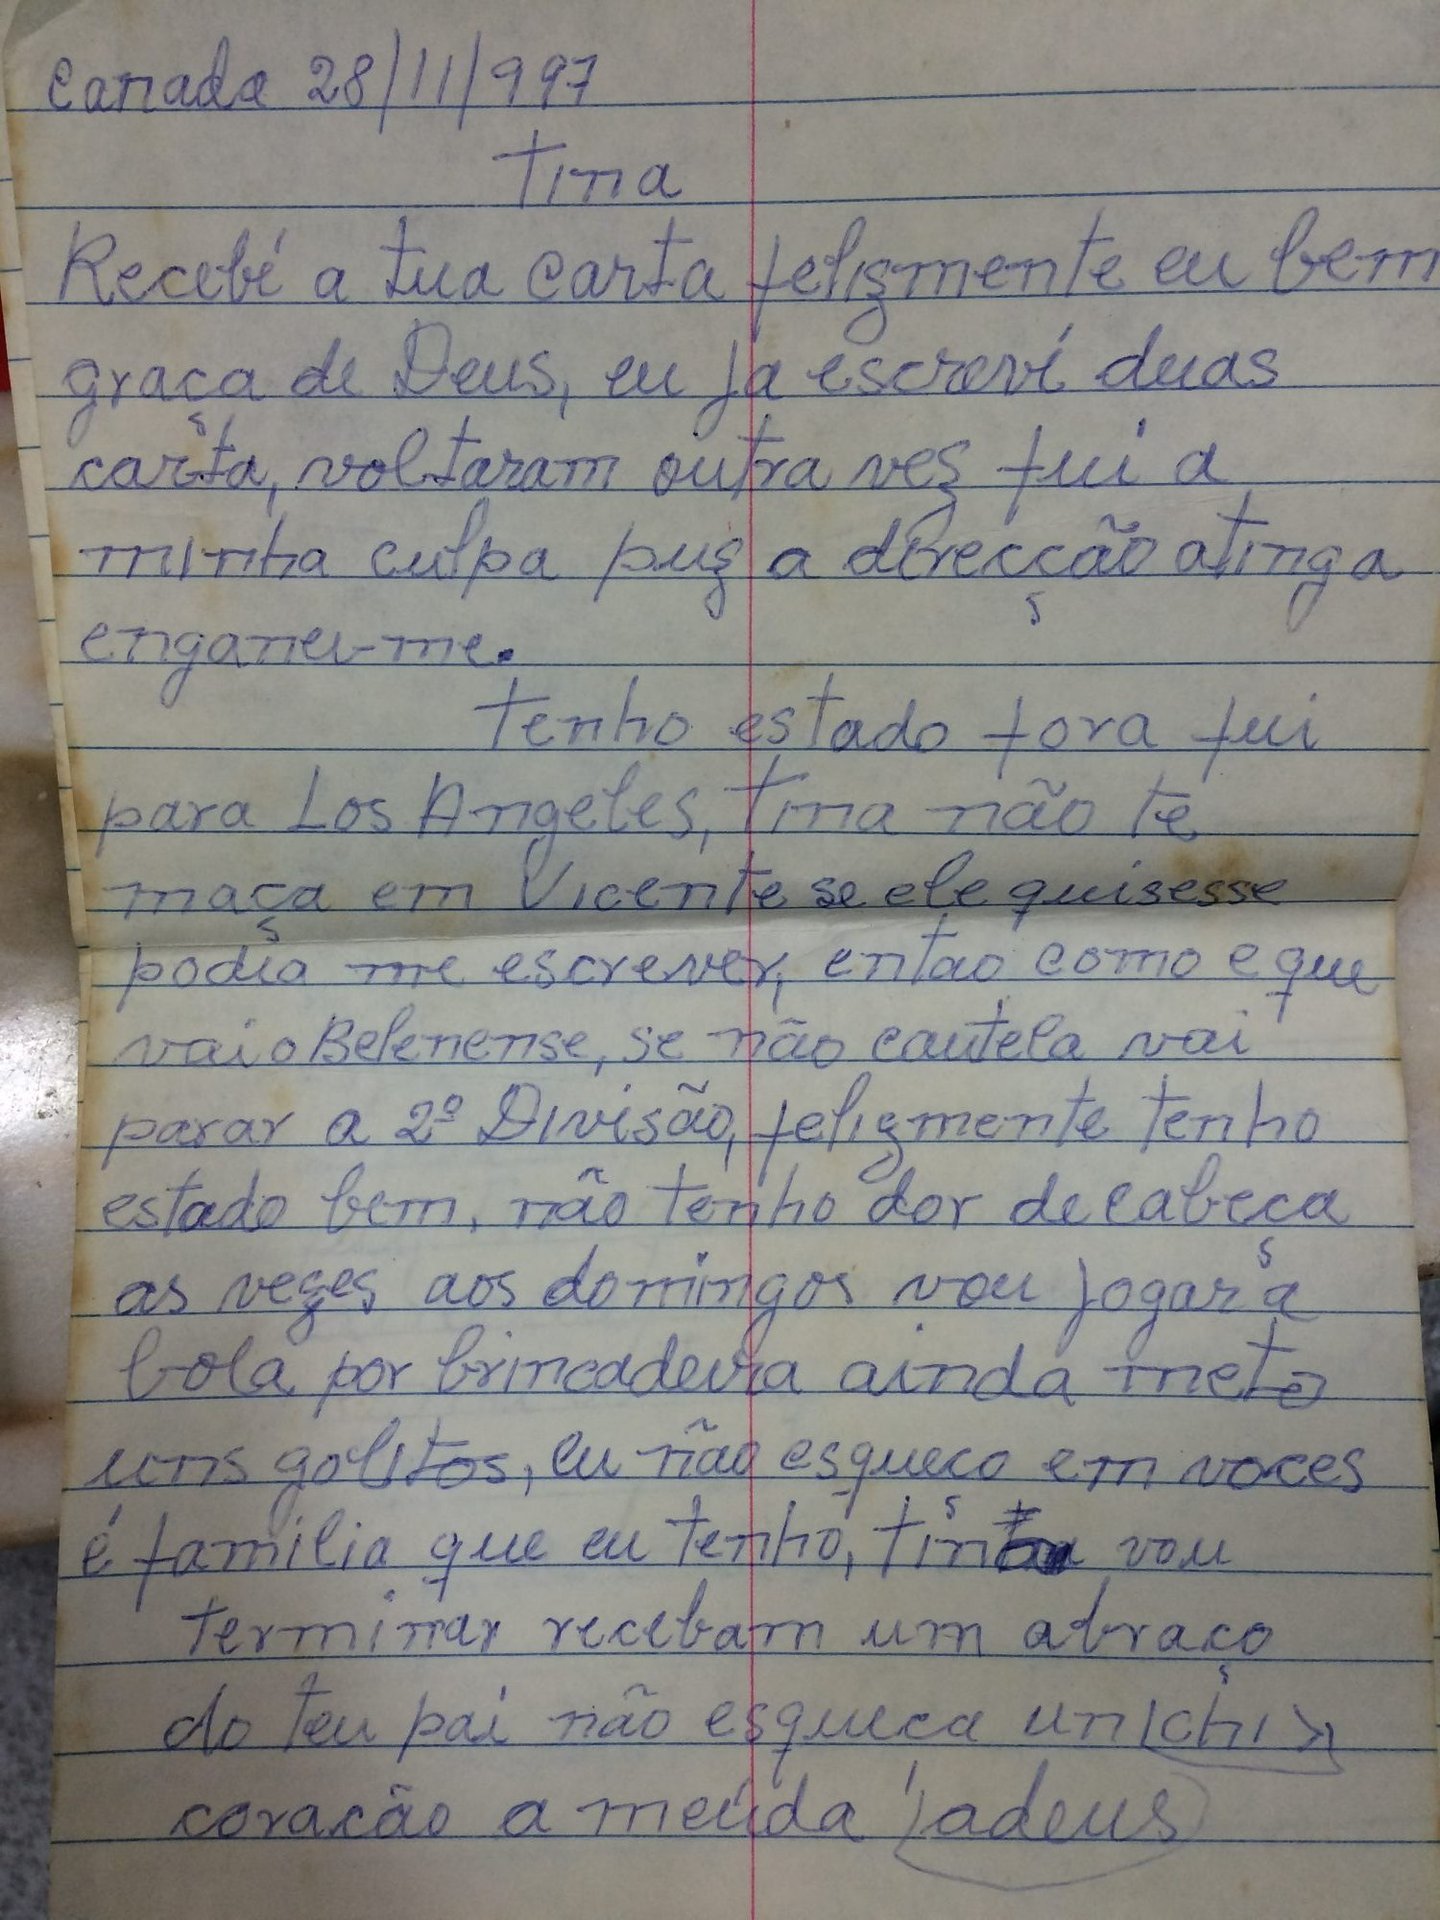 Canada 28/11/997
Tina
Recebé a tua carta felizmente eu bem
graça de Deus, eu ja escreví duas
carta, voltaram outra vez fui a
minha culpa puz a direcção atinga
enganei-me.
Tenho estado fora fui
para Los Angeles, Tina não te
maça em Vicente se ele quisesse
podia me escrever, entao como e que
vai o Belenense, se não cautela vai
parar a 2º Divisão, felizmente tenho
estado bem, não tenho dor de cabeça
as vezes aos domingos vou jogar a
bola por brincadeira ainda meto
uns golitos, eu não esqueço em voces
é familia que eu tenho, vou
terminar recebam um abraço
do teu pai não esqueca un chi
coracão a meúda adeus